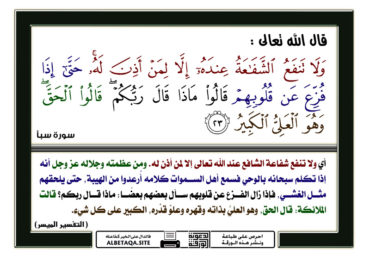 قال الله تعالى :
وَلَا تَنفَعُ الشَّفَاعَةُ عِندَهُ إِلَّا لِمَنْ أَذِنَ لَهُ حَتَّىٰ إِذَا
فُزِّعَ عَن قُلُوبِهِمْ قَالُوا مَاذَا قَالَ رَبُّكُمْ قَالُوا الْحَقَّ
وَهُوَ الْعَلِيُّ الْكَبِيرُ ٢٣
سورة سبأ
أي ولا تنفع شفاعة الشافع عند الله تعالى إلا لمن أذن له. ومن عظمته وجلاله عز وجل أنه
إذا تكلم سبحانه بالوحي فسمع أهل السموات كلامه أرعدوا من الهيبة، حتى يلحقهم
مثل الغشي، فإذا زال الفزع عن قلوبهم سأل بعضهم بعضا: ماذا قال ربكم؟ قالت
الملائكة: قال الحق، وهو العلي بذاته وقهره وعلو قدره، الكبير على كل شيء.
( التفسير الميسر)
احرص على طباعة
ونشر هذه الورقة
فالدال على الخير كفاعله
ALBETAQA.SITE